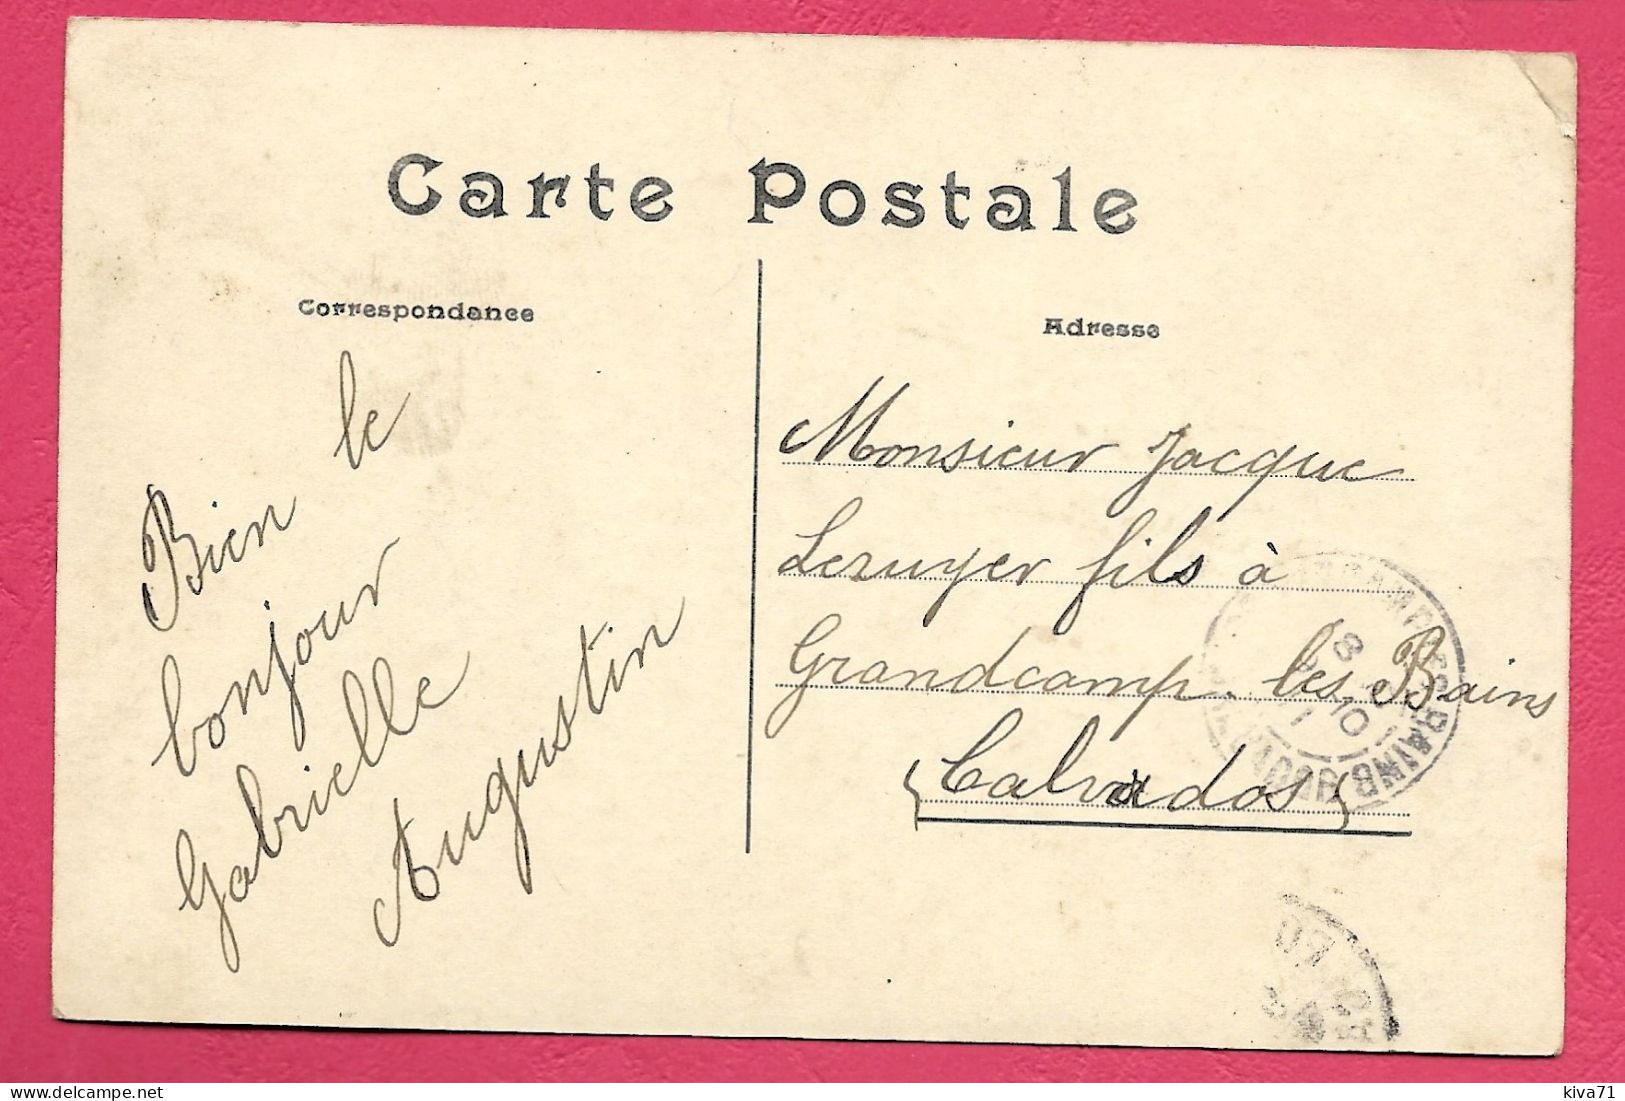 Carte Postale
Correspondance
Adresse
Bien le
bonjour
Gabrielle
Augustin
Monsieur Jacque
Lesuyer fils à
Grandcamp. les Bains
(Calvados)
8
10
kiva71